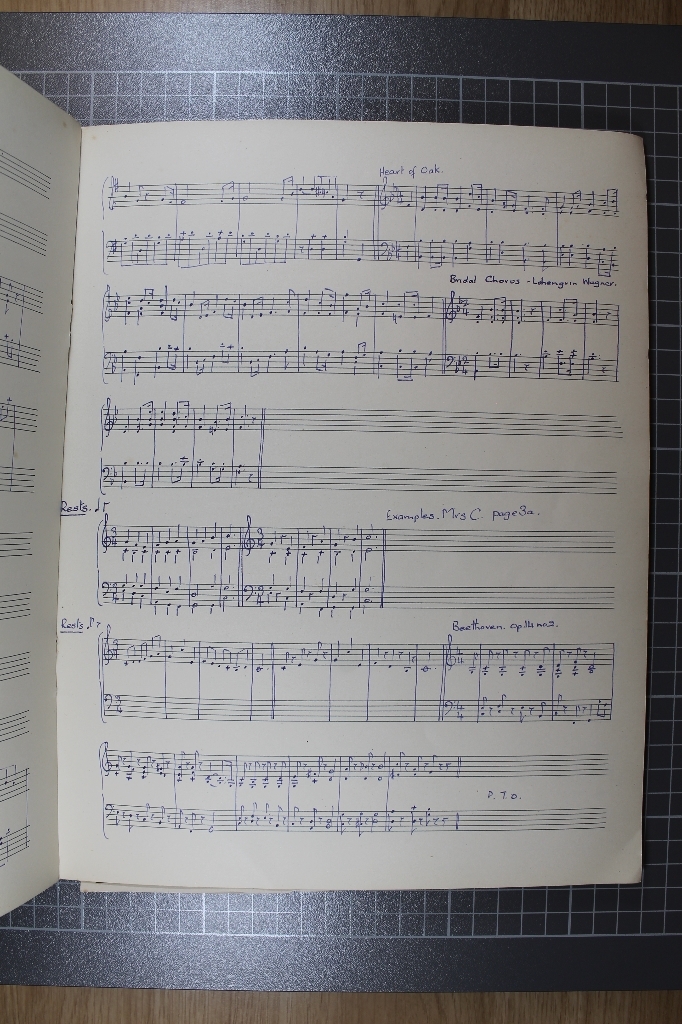 Heart of Oak.
Bridal Chorus - Lohengrin Wagner.
Rests.
Examples. Mrs C. page 3a.
Rests.
Beethoven. op 14 no 2.
P. T. O.